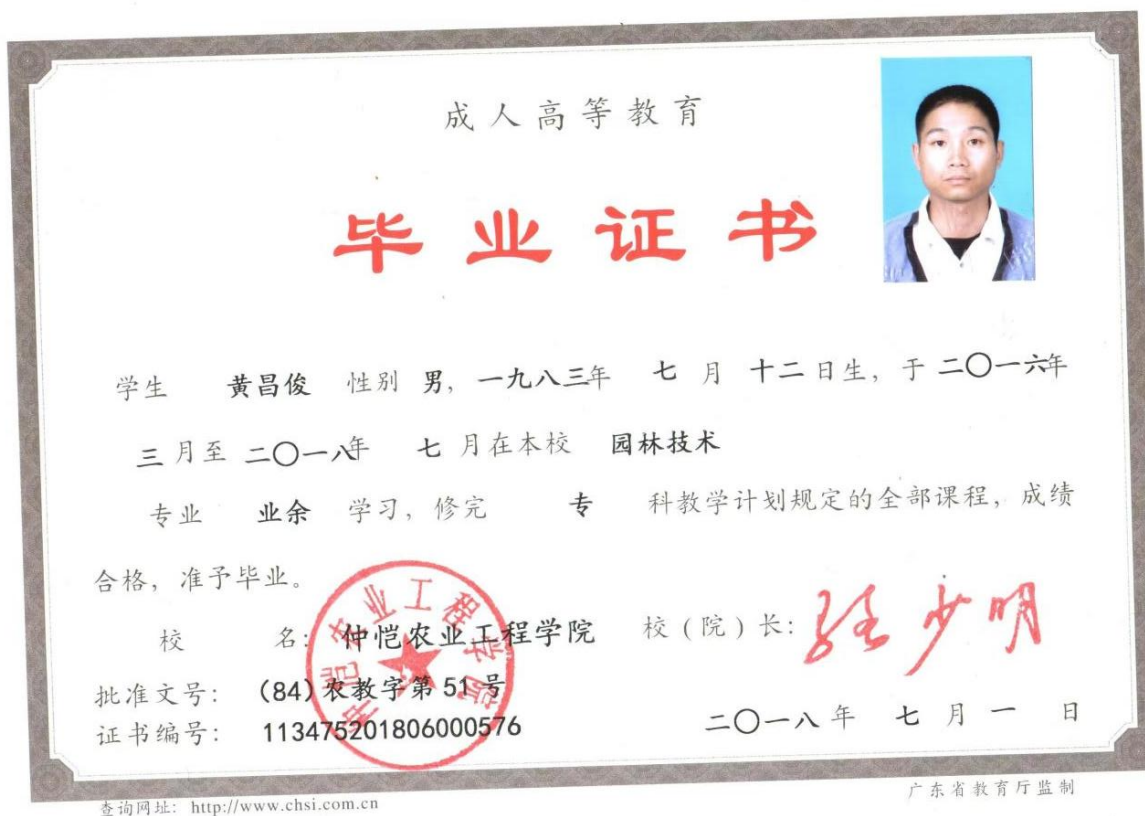 成人高等教育
毕业证书
学生 黄昌俊 性别 男，一九八三年 七 月 十二 日生，于 二〇一六年
三 月至 二〇一八年 七 月在本校 园林技术
专业 业余 学习，修完 专 科教学计划规定的全部课程，成绩
合格，准予毕业。
校 名：仲恺农业工程学院 校（院）长：
仲恺农业工程学院
批准文号：（84）农教字第 51 号
证书编号：113475201806000576 二〇一八 年 七 月 一 日
查询网址：http://www.chsi.com.cn 广东省教育厅监制